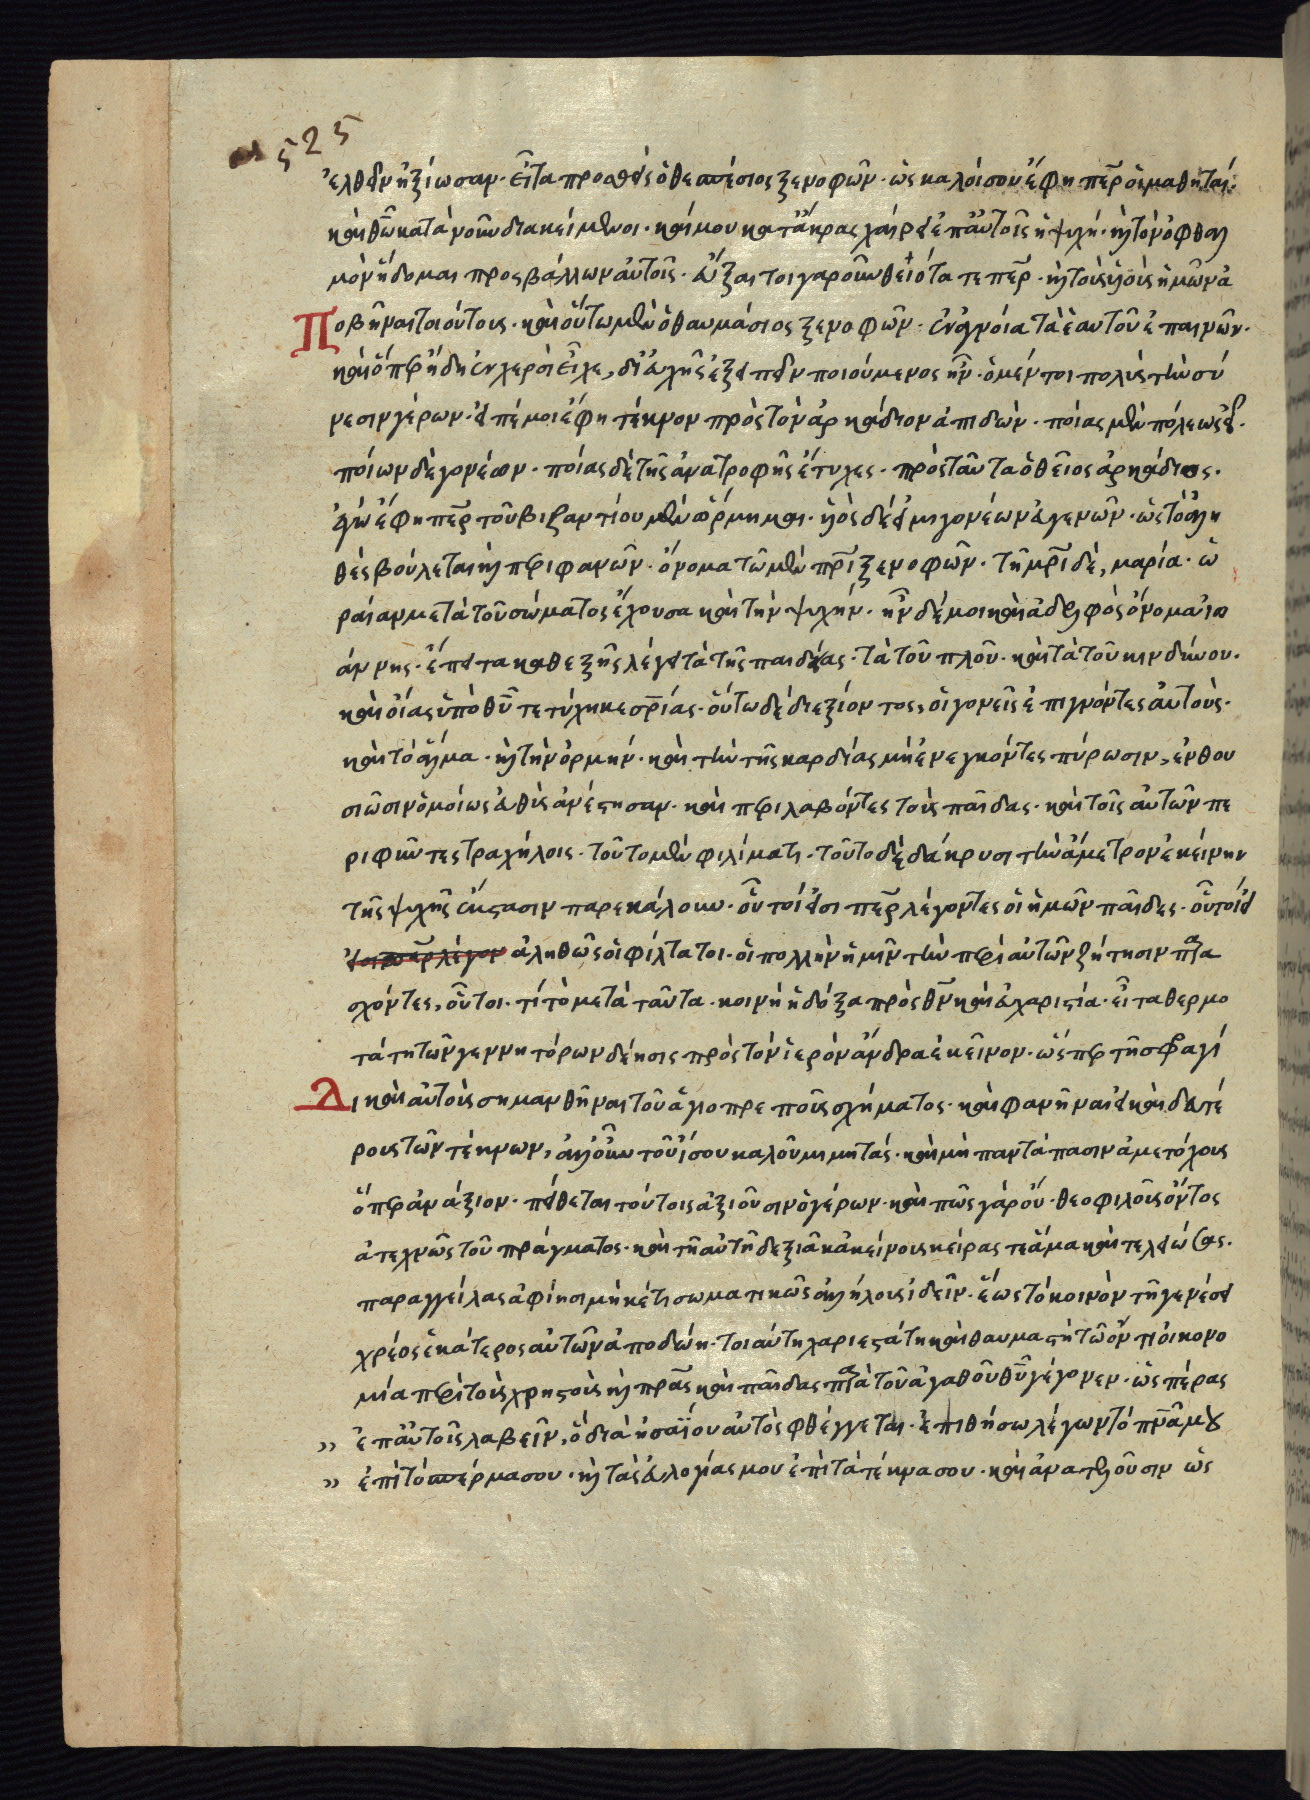 525
ελθεῖν ἠξίωσαν· εἶτα προσθεὶς ὁ θεσπέσιος ξενοφῶν· ὡς καλοί σου ἔφη περ οἱ μαθηταί·
καὶ θῶ κατὰ νοῦν διακείμενοι· καί μου κατάκρας χαίρει ἐπαὐτοῖς ἡ ψυχή· καὶ τὸν ὀφθαλ
μὸν ἥδομαι προςβάλλων αὐτοῖς· εὖξαι τοιγαροῦν θειότατε περ· καὶ τοὺς υἱοὺς ἡμῶν ἀ
ποβῆναι τοιούτους· καὶ οὕτω μὲν ὁ θαυμάσιος ξενοφῶν· ἐν ἀγνοία τὰ ἑαυτοῦ ἐπαινῶν·
καὶ ὅπερ ἤδη ἐν χερσὶ εἶχε, δι εὐχῆς ἐξειπεῖν ποιούμενος ἦν· ὁ μέντοι πολιὸς τὴν σύ
νεσιν γέρων· εἰπέ μοι ἔφη τέκνον πρὸς τὸν ἀρκάδιον ἀπιδών· ποίας μὲν πόλεως εἶ·
ποίων δὲ γονέων· ποίας δὲ τῆς ἀνατροφῆς ἔτυχες· πρὸς ταῦτα ὁ θεῖος ἀρκάδιος·
ἐγὼ ἔφη περ τοῦ βιζαντίου μὲν ὥρμημαι· υἱὸς δέ εἰμι γονέων εὐγενῶν· ὡς τὸ ἀλη
θὲς βούλεται καὶ περιφανῶν· ὄνομα τῶ μὲν πρὶ ξενοφῶν· τῆ μρὶ δὲ, μαρία· ὡ
ραίαν μετὰ τοῦ σώματος ἔχουσα καὶ τὴν ψυχήν· ἦν δέ μοι καὶ ἀδελφὸς ὄνομα ἰω
άννης· ἔπειτα καθεξῆς λέγει τὰ τῆς παιδείας· τὰ τοῦ πλοῦ· καὶ τὰ τοῦ κινδύνου·
καὶ οἵας ὑπὸ θῦ τετύχηκε σρίας· οὕτω δὲ διεξιόντος, οἱ γονεῖς ἐπιγνόντες αὐτοὺς·
καὶ τὸ αἷμα· καὶ τὴν ὁρμήν· καὶ τὴν τῆς καρδίας μὴ ἐνεγκόντες πύρωσιν, ἐνθου
σιῶσιν ὁμοίως εὐθὺς ἀνέστησαν· καὶ περιλαβόντες τοὺς παῖδας· καὶ τοῖς αὐτῶν πε
ριφῦντες τραχήλοις· τοῦτο μὲν φιλίματι· τοῦτο δὲ δάκρυσι τὴν ἄμετρον ἐκείνην
τῆς ψυχῆς ἔνστασιν παρεκάλουν· οὗτοί εἰσι περ λέγοντες οἱ ἡμῶν παῖδες· οὗτοί εἰ
εἰσι περ λέγον ἀληθῶς οἱ φίλτατοι· οἱ πολλὴν ἡμῖν τὴν περὶ αὐτῶν ζήτησιν πρα
σχόντες, οὗτοι· τί τὸ μετὰ ταῦτα· κοινὴ ἡ δόξα πρὸς θν καὶ εὐχαριστία· εἶτα θερμο
τάτη τῶν γεννητόρων δέησις πρὸς τὸν ἱερὸν ἄνδρα ἐκεῖνον· ὥςπερ τῆ σφραγί
δι καὶ αὐτοὺς σημανθῆναι τοῦ ἁγιοπρεποῦς σχήματος· καὶ φανῆναι εἰ καὶ δευτέ
ρους τῶν τέκνων, ἀλλ οὖν τοῦ ἴσου καλοῦ μιμητάς· καὶ μὴ παντάπασιν ἀμετόχους
ὅπερ ἀνάξιον· πείθεται τούτοις ἀξιοῦσιν ὁ γέρων· καὶ πῶς γὰρ οὔ· θεοφιλοῦς ὄντος
ἀτεχνῶς τοῦ πράγματος· καὶ τῆ αὐτῆ δεξιᾶ κἀκείνους κείρας τε ἅμα καὶ τελειώσας·
παραγγείλας ἀφίησι μηκέτι σωματικῶς ἀλλήλους ἰδεῖν· ἕως τὸ κοινὸν τῆ γενέσει
χρέος ἑκάτερος αὐτῶν ἀποδώη· τοιαύτη χαριεστάτη καὶ θαυμαστὴ τῶ ὄντι οἰκονο
μία περὶ τοὺς χρηστοὺς καὶ πρας καὶ παῖδας πρὰ τοῦ ἀγαθοῦ θῦ γέγονεν· ὡς πέρας
» ἐπαὐτοῖς λαβεῖν, ὃ διὰ ἡσαΐου αὐτὸς φθέγγεται· ἐπιθήσω λέγων τὸ πνᾶ μου
» ἐπὶ τὸ σπέρμα σου· καὶ τὰς εὐλογίας μου ἐπὶ τὰ τέκνα σου· καὶ ἀνατελοῦσιν ὡς